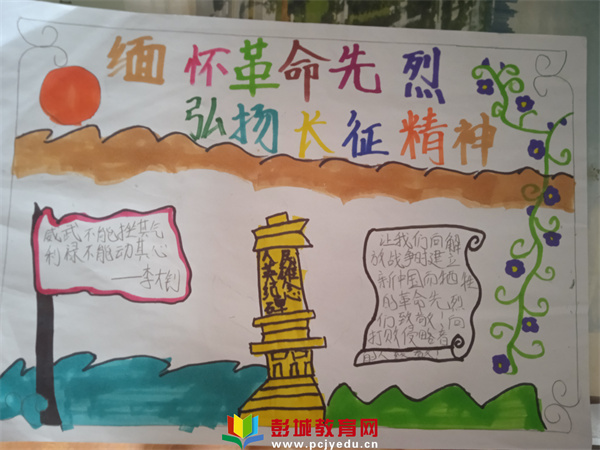 缅怀革命先烈
弘扬长征精神
威武不能挫其气
利禄不能动其心
——李大钊
人民英雄纪念碑
让我们向解
放战争时建立
新中国而牺牲
的革命先烈
们致敬!向
打败侵略者
彭城教育网
www.pcjyedu.cn